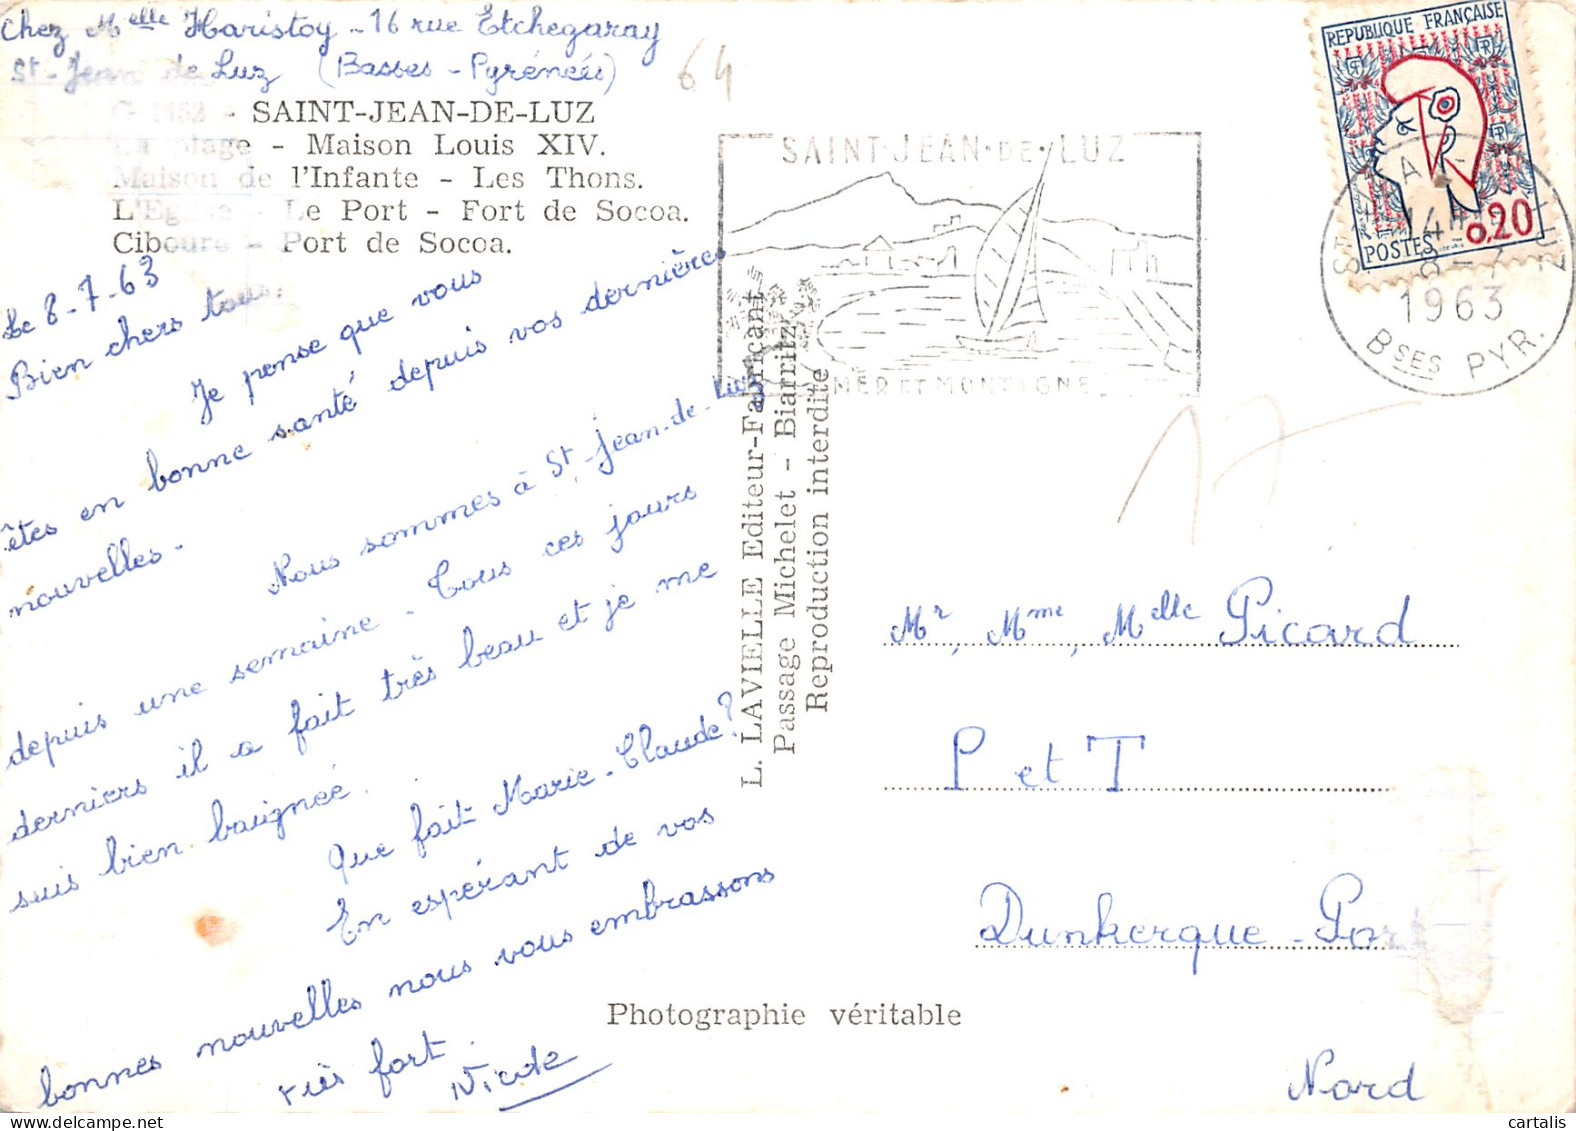 Chez Melle Haristoy - 16 rue Etchegaray
St-Jean de Luz (Basses-Pyrénées)
64
SAINT-JEAN-DE-LUZ
plage - Maison Louis XIV.
Maison de l'Infante - Les Thons.
L'Eglise - Le Port - Fort de Socoa.
Ciboure - Port de Socoa.
Le 8-7-63
Bien chers tous.
Je pense que vous
êtes en bonne santé depuis vos dernières
nouvelles.
Nous sommes à St-Jean-de-Luz
depuis une semaine. Tous ces jours
derniers il a fait très beau et je me
suis bien baignée.
Que fait Marie-Claude?
En espérant de vos
bonnes nouvelles nous vous embrassons
très fort.
Nicole
L. LAVIELLE Editeur-Fabricant
Passage Michelet - Biarritz
Reproduction interdite
Photographie véritable
SAINT-JEAN-DE-LUZ
MER ET MONTAGNE
REPUBLIQUE FRANÇAISE
POSTES
0,20
1963
BSES PYR.
17
Mr, Mme, Melle Picard
P et T
Dunkerque - Port
Nord
cartalis